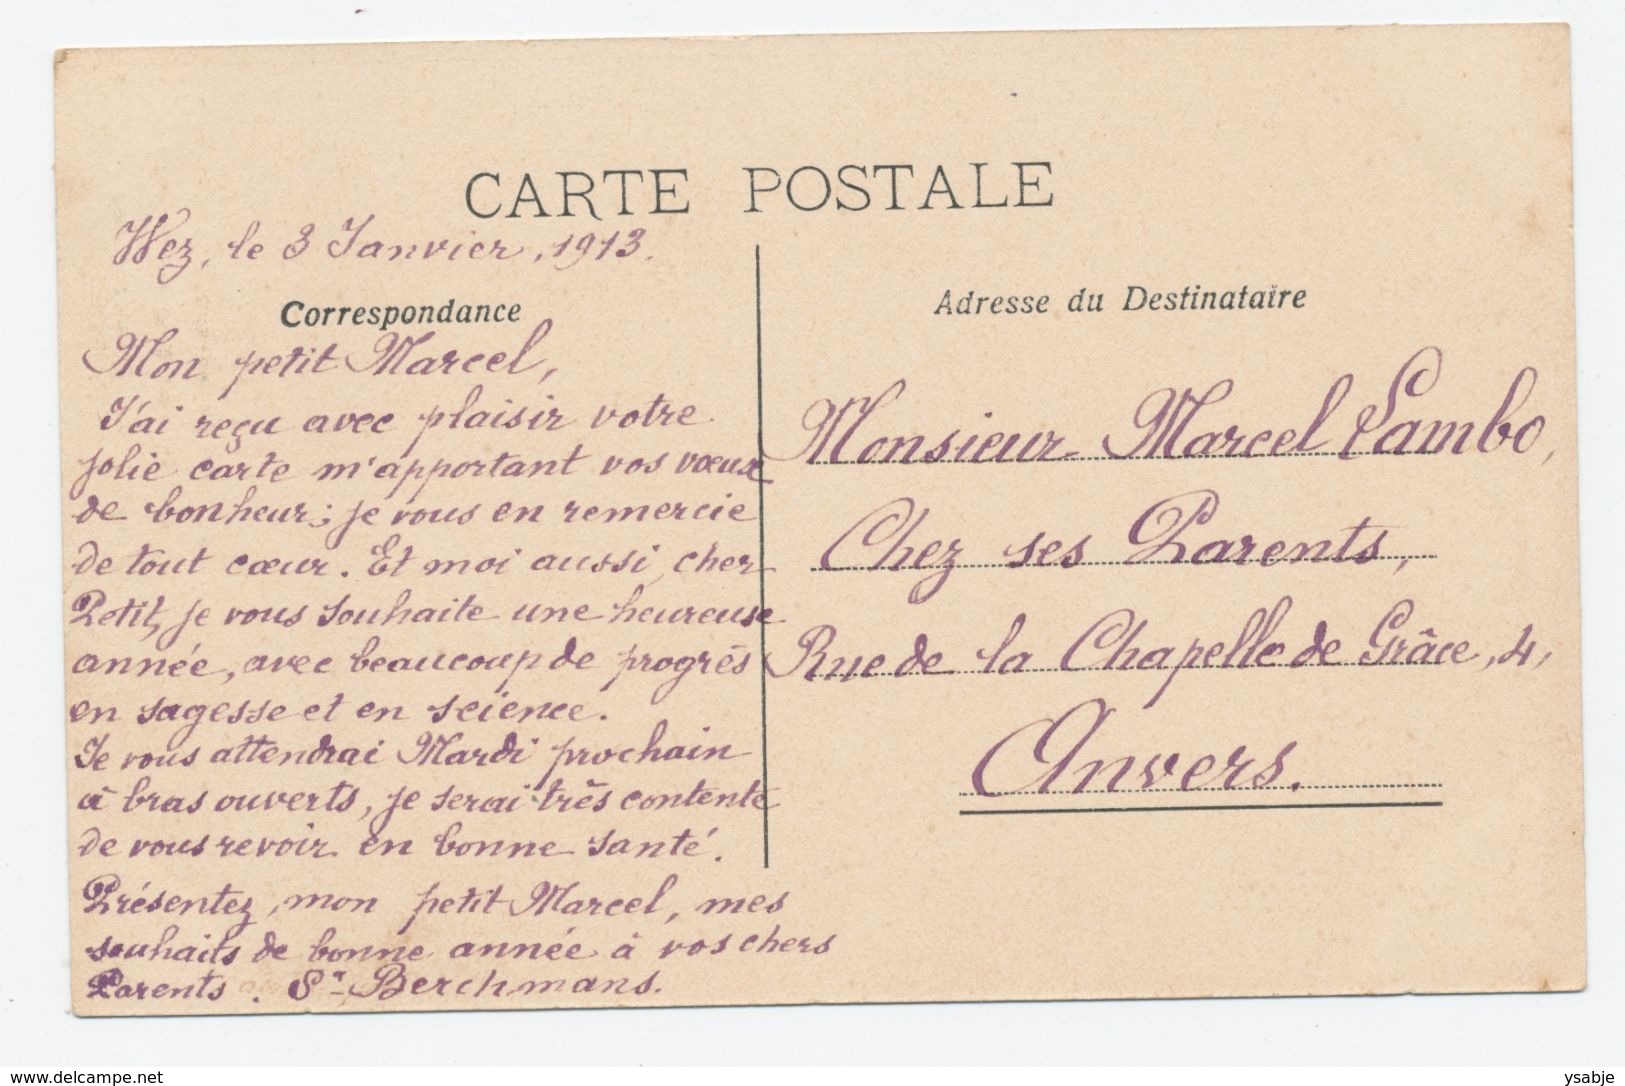 CARTE POSTALE
Wez, le 3 Janvier, 1913.
Correspondance
Mon petit Marcel,
J'ai reçu avec plaisir votre
jolie carte m'apportant vos vœux
de bonheur; je vous en remercie
de tout cœur. Et moi aussi, cher
Petit, je vous souhaite une heureuse
année, avec beaucoup de progrès
en sagesse et en science.
Je vous attendrai Mardi prochain
à bras ouverts, je serai très contente
de vous revoir en bonne santé.
Présentez, mon petit Marcel, mes
souhaits de bonne année à vos chers
Parents. Sr Berchmans.
Adresse du Destinataire
Monsieur Marcel Lambo,
Chez ses Parents,
Rue de la Chapelle de Grâce, 4,
Anvers.
www.delcampe.net
ysabje